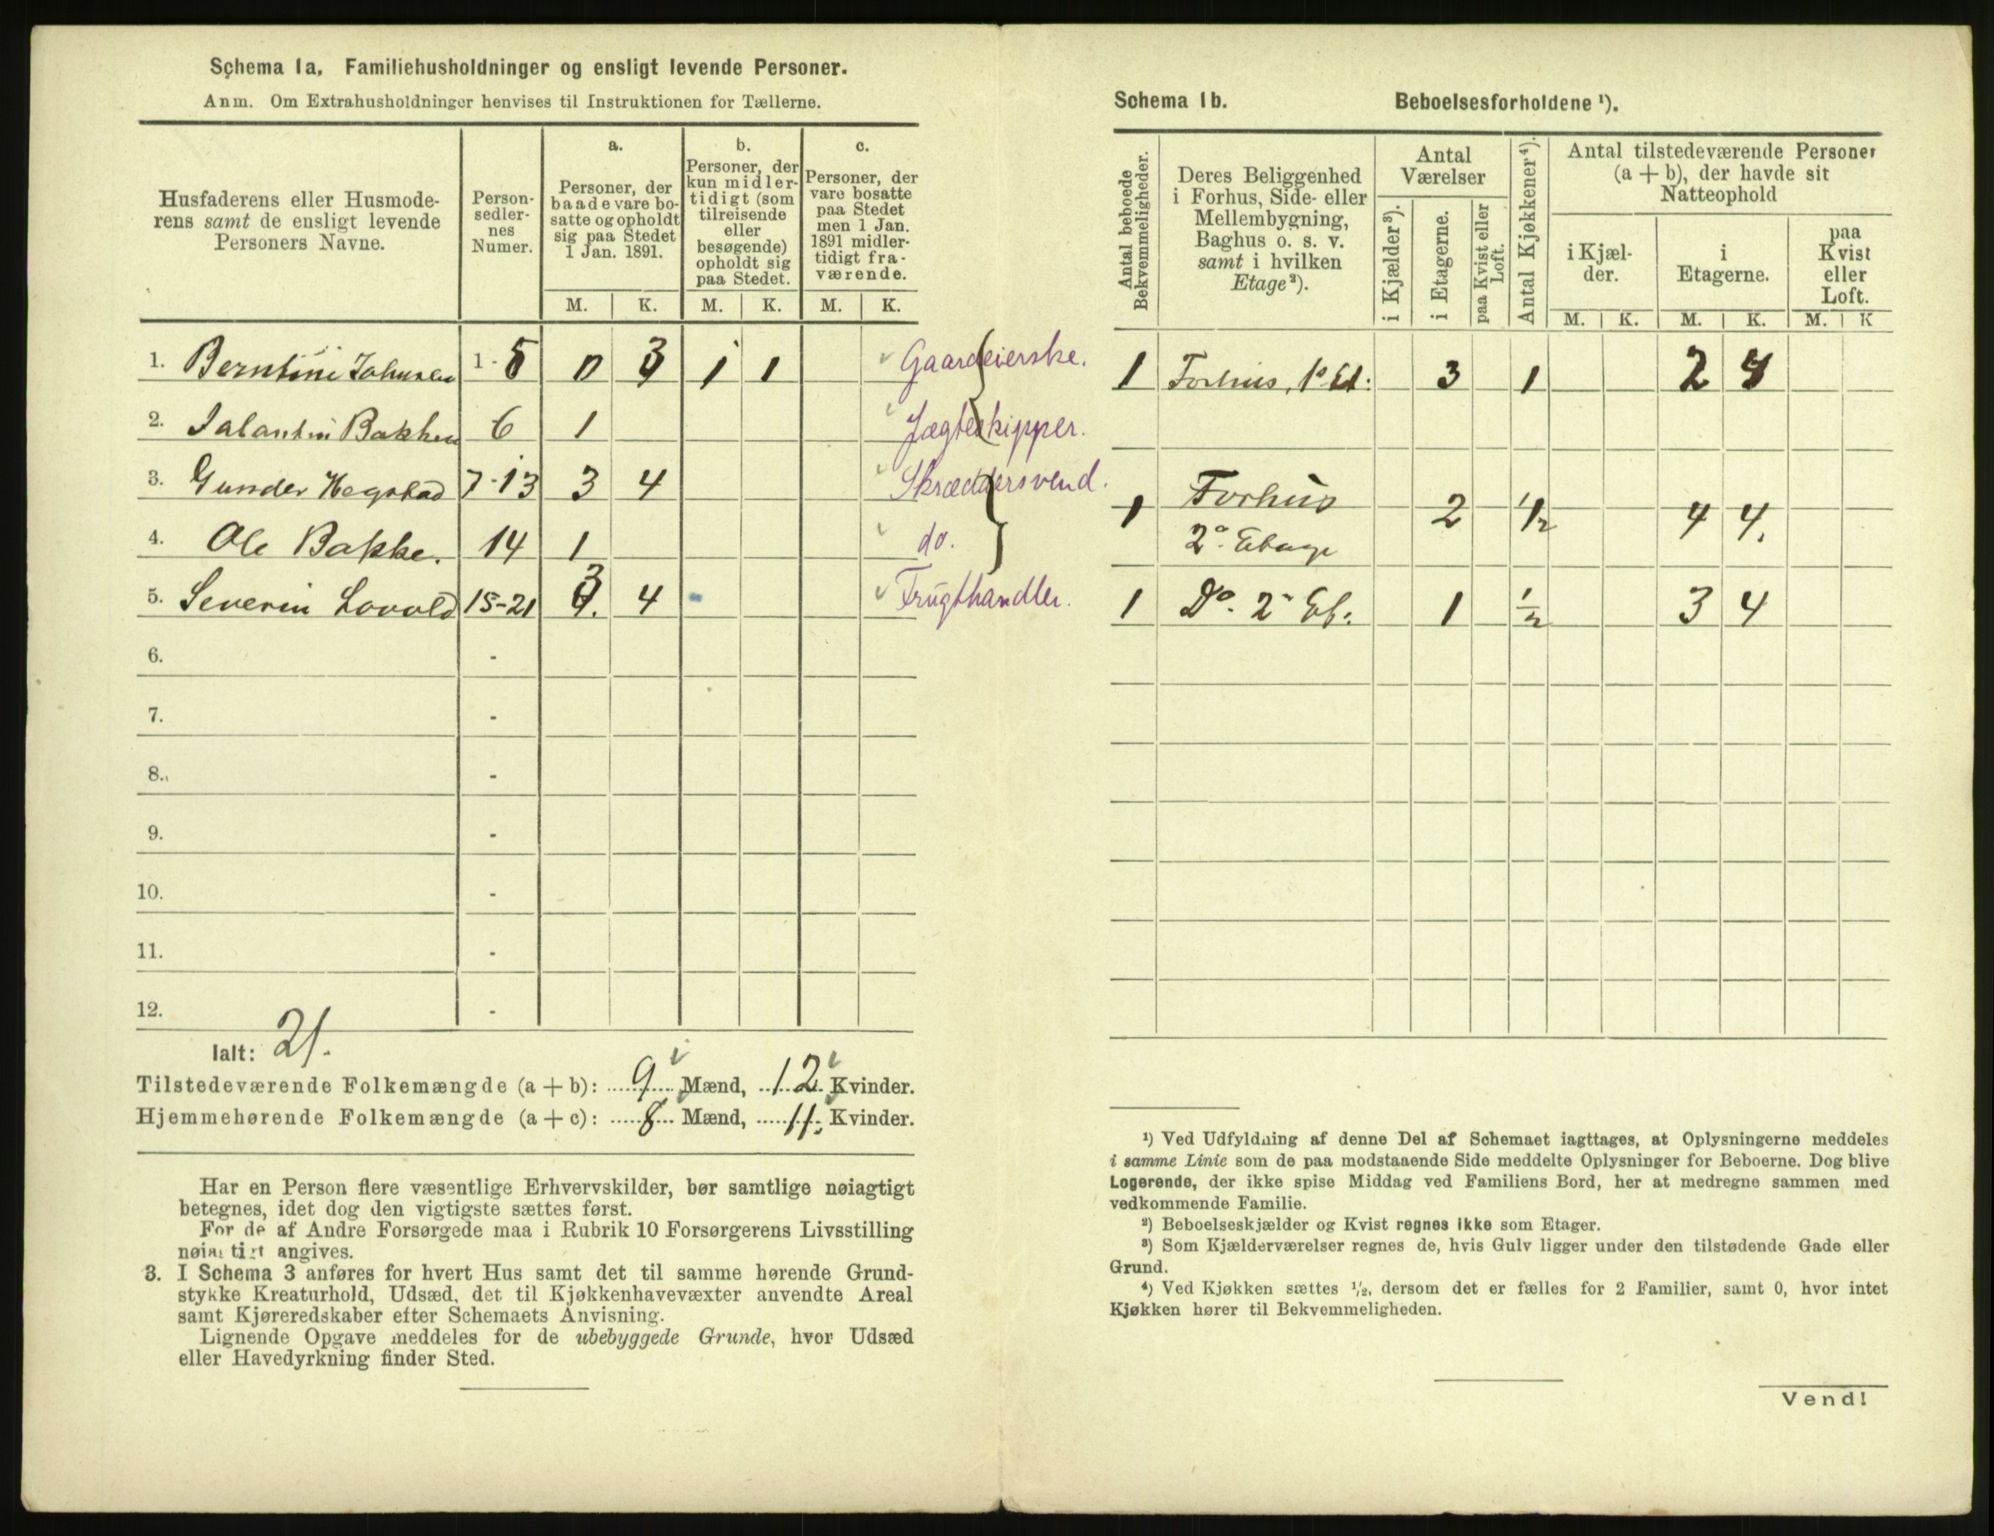 Schema 1a. Familiehusholdninger og ensligt levende Personer.
Anm. Om Extrahusholdninger henvises til Instruktionen for Tællerne.
Husfaderens eller Husmoderens samt de ensligt levende Personers Navne.
Personsedlernes Numer.
a.
Personer, der baade vare bosatte og opholdt sig paa Stedet 1 Jan. 1891.
b.
Personer, der kun midlertidigt (som tilreisende eller besøgende) opholdt sig paa Stedet.
c.
Personer, der vare bosatte paa Stedet men 1 Jan. 1891 midlertidigt fraværende.
M. K. M. K. M. K.
1. Berntine Johnsen 1-5 0 3 1 1 Gaardeierske.
2. Bakken 6 1 Jægteskipper.
3. Gunder Hegstad 7-13 3 4 Skræddersvend.
4. Ole Bakke. 14 1 do.
5. Severin Lovold 15-21 3 4 Frugthandler.
6. -
7. -
8. -
9. -
10. -
11. -
12. -
Ialt: 21.
Tilstedeværende Folkemængde (a + b): 9 Mænd, 12 Kvinder.
Hjemmehørende Folkemængde (a + c): 8 Mænd, 11. Kvinder.
Har en Person flere væsentlige Erhvervskilder, bør samtlige nøiagtigt
betegnes, idet dog den vigtigste sættes først.
For de af Andre Forsørgede maa i Rubrik 10 Forsørgerens Livsstilling
nøiagtigt angives.
3. I Schema 3 anføres for hvert Hus samt det til samme hørende Grund-
stykke Kreaturhold, Udsæd, det til Kjøkkenhavevæxter anvendte Areal
samt Kjøreredskaber efter Schemaets Anvisning.
Lignende Opgave meddeles for de ubebyggede Grunde, hvor Udsæd
eller Havedyrkning finder Sted.
Schema 1b. Beboelsesforholdene ¹).
Antal beboede Bekvemmeligheder.
Deres Beliggenhed i Forhus, Side- eller Mellembygning, Baghus o. s. v. samt i hvilken Etage²).
Antal Værelser
i Kjælder³).
i Etagerne.
paa Kvist eller Loft.
Antal Kjøkkener⁴).
Antal tilstedeværende Personer (a + b), der havde sit Natteophold
i Kjælder.
i Etagerne.
paa Kvist eller Loft.
M. K. M. K. M. K
1 Forhus, 1ª Et: 3 1 2 4
1 Forhus 2 1/2 4 4.
2ª Etage
1 Dº. 2ª Et: 1 1/2 3 4
¹) Ved Udfyldning af denne Del af Schemaet iagttages, at Oplysningerne meddeles
i samme Linie som de paa modstaaende Side meddelte Oplysninger for Beboerne. Dog blive
Logerende, der ikke spise Middag ved Familiens Bord, her at medregne sammen med
vedkommende Familie.
²) Beboelseskjælder og Kvist regnes ikke som Etager.
³) Som Kjælderværelser regnes de, hvis Gulv ligger under den tilstødende Gade eller
Grund.
⁴) Ved Kjøkken sættes ¹/₂, dersom det er fælles for 2 Familier, samt 0, hvor intet
Kjøkken hører til Bekvemmeligheden.
Vend!